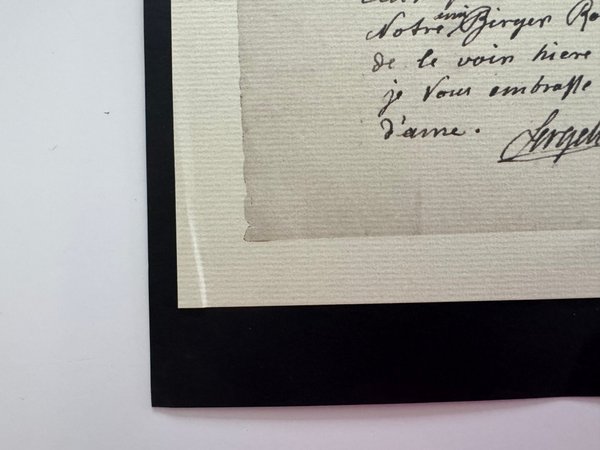 Notre ami Birger Ro
de le voir hiere
je vous embrasse
d'ame.
Sergel